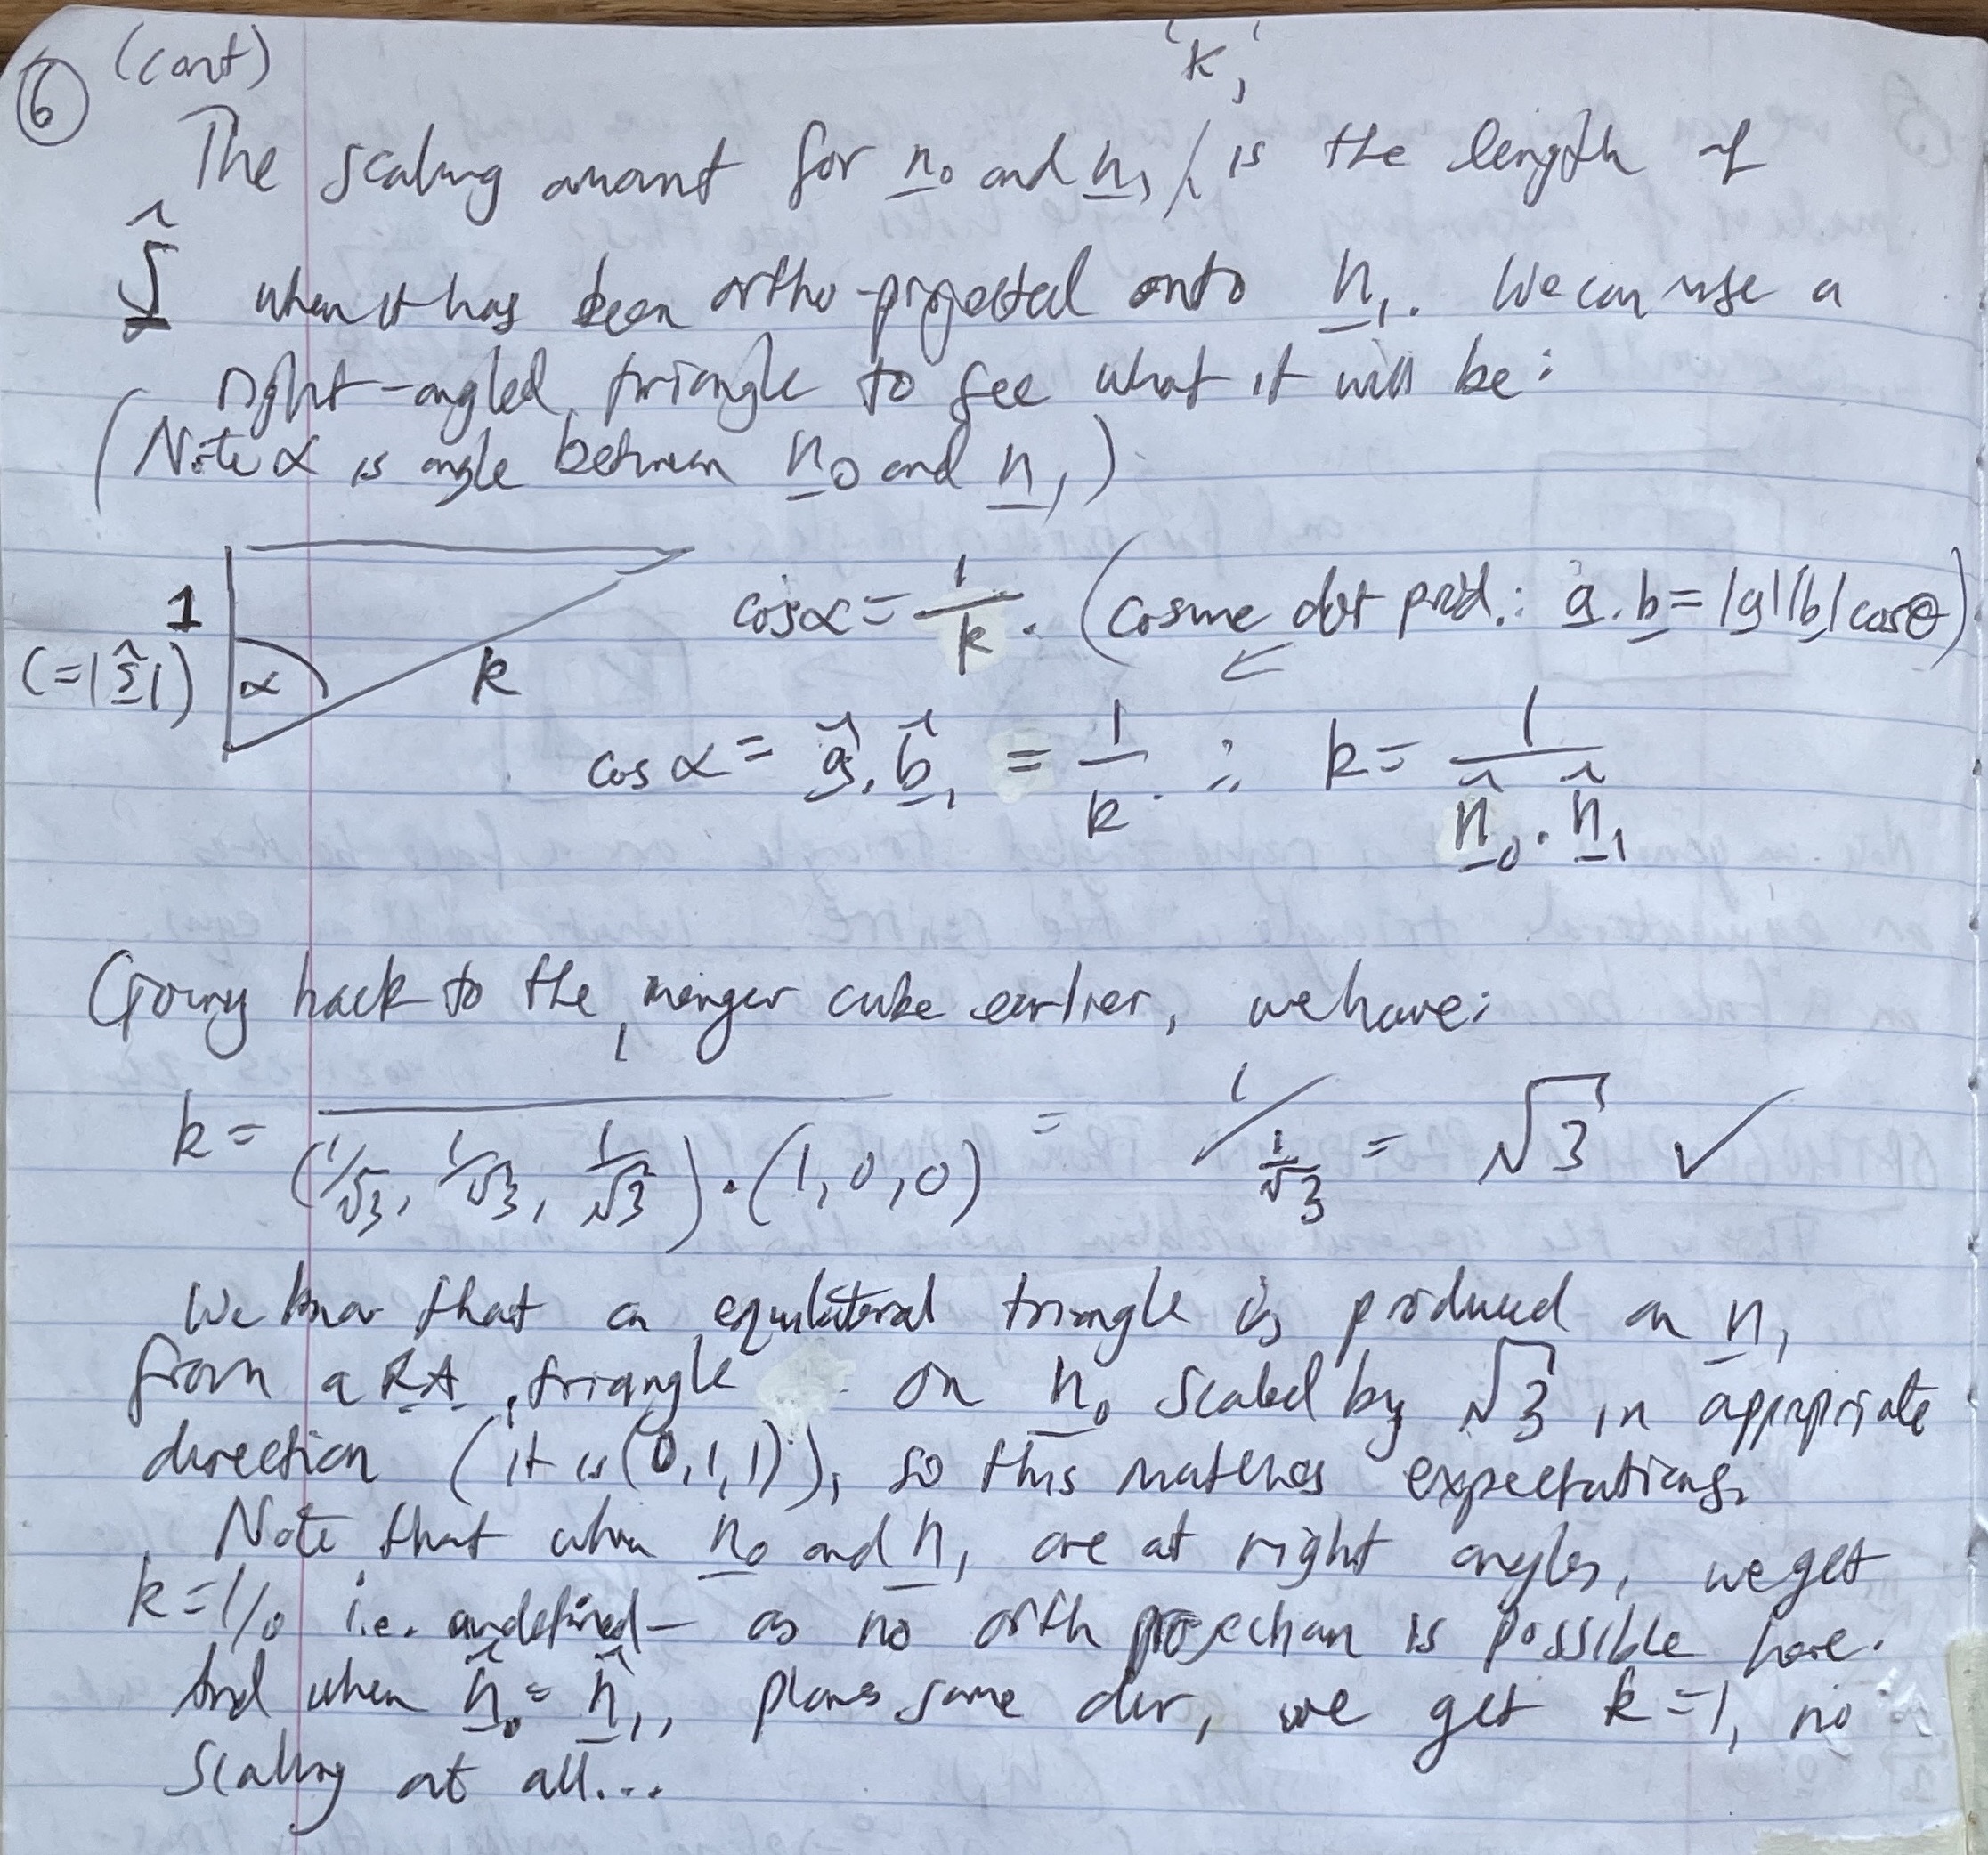 ⑥ (cont)
'k',
The scaling amount for n₀ and n₁ / is the length of
ŝ when it has been ortho-projected onto n₁. We can use a
right-angled triangle to see what it will be:
(Note α is angle between n₀ and n₁)
1
(=|ŝ|) α k
cosα = 1/k. (cosine dot prod.: a.b = |a||b|cosθ)
←
cos α = â.b̂, = 1/k. ∴ k = 1/(n̂₀.n̂₁)
Going back to the menger cube earlier, we have:
k = 1/((1/√3, 1/√3, 1/√3).(1,0,0)) = 1/(1/√3) = √3 ✓
We know that an equilateral triangle is produced on n₁
from a RA triangle on n₀ scaled by √3 in appropriate
direction (it is (0,1,1)), so this matches expectations.
Note that when n₀ and n₁ are at right angles, we get
k=1/0 i.e. undefined – as no orth projection is possible here.
And when n̂₀ = n̂₁, planes same dir, we get k=1, no
scaling at all...